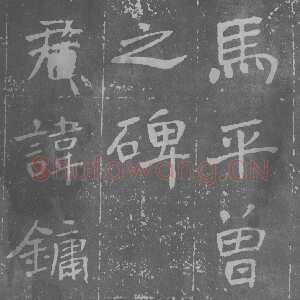 馬平曽
之碑
君諱鏞
shufawang.CN